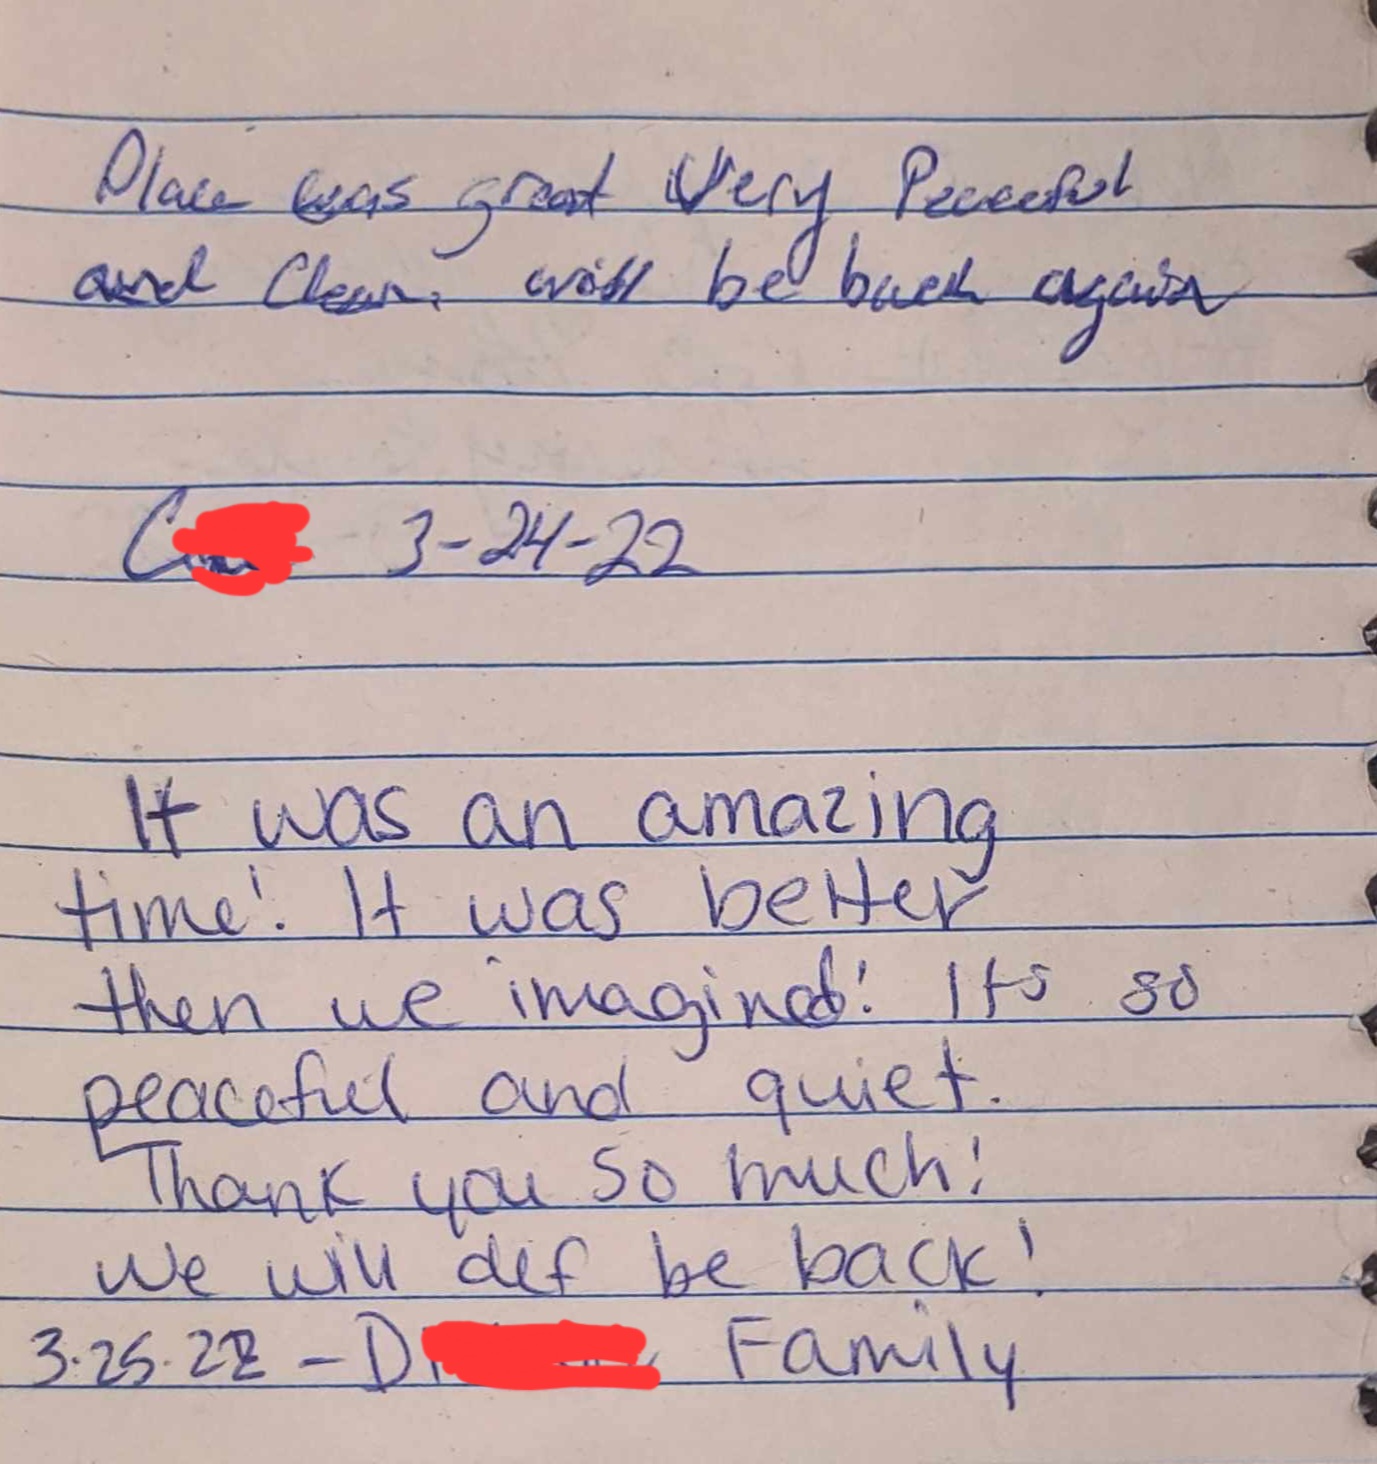 Place was great Very Peaceful
and Clean. will be back again
3-24-22
It was an amazing
time! It was better
then we imagined! Its so
peaceful and quiet.
Thank you so much!
we will def be back!
3.25.22 - D Family